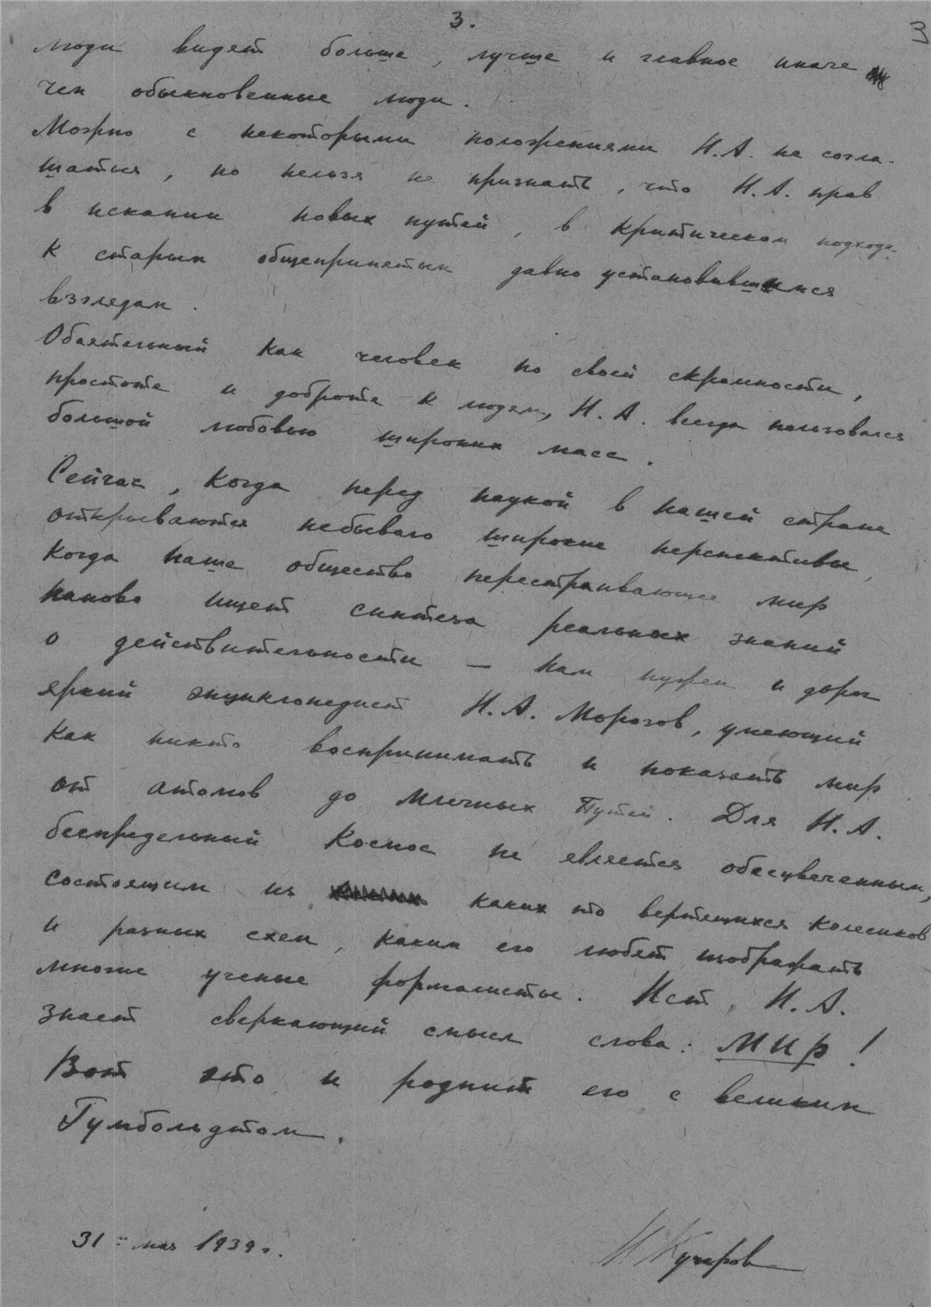 3.
3
люди видят больше, лучше и главное иначе
чем обыкновенные люди.
Можно с некоторыми положениями Н.А. не согла-
шаться, но нельзя не признать, что Н.А. прав
в искании новых путей, в критическом подходе
к старым общепринятым давно установившимся
взглядам.
Обаятельный как человек по своей скромности,
простоте и доброте к людям, Н.А. всегда пользовался
большой любовью широких масс.
Сейчас, когда перед наукой в нашей стране
открываются небывало широкие перспективы,
когда наше общество перестраивающее мир
наново ищет синтеза реальных знаний
о действительности — нам нужен и дорог
яркий энциклопедист Н.А. Морозов, умеющий
как никто воспринимать и показать мир
от атомов до Млечных Путей. Для Н.А.
беспредельный Космос не является обесцвеченным,
состоящим из каких то вертящихся колесиков
и разных схем, каким его любят изображать
многие ученые формалисты. Нет, Н.А.
знает сверкающий смысл слова: МИР!
Вот это и роднит его с великим
Гумбольдтом.
31 мая 1939 г.
Н Кучеров